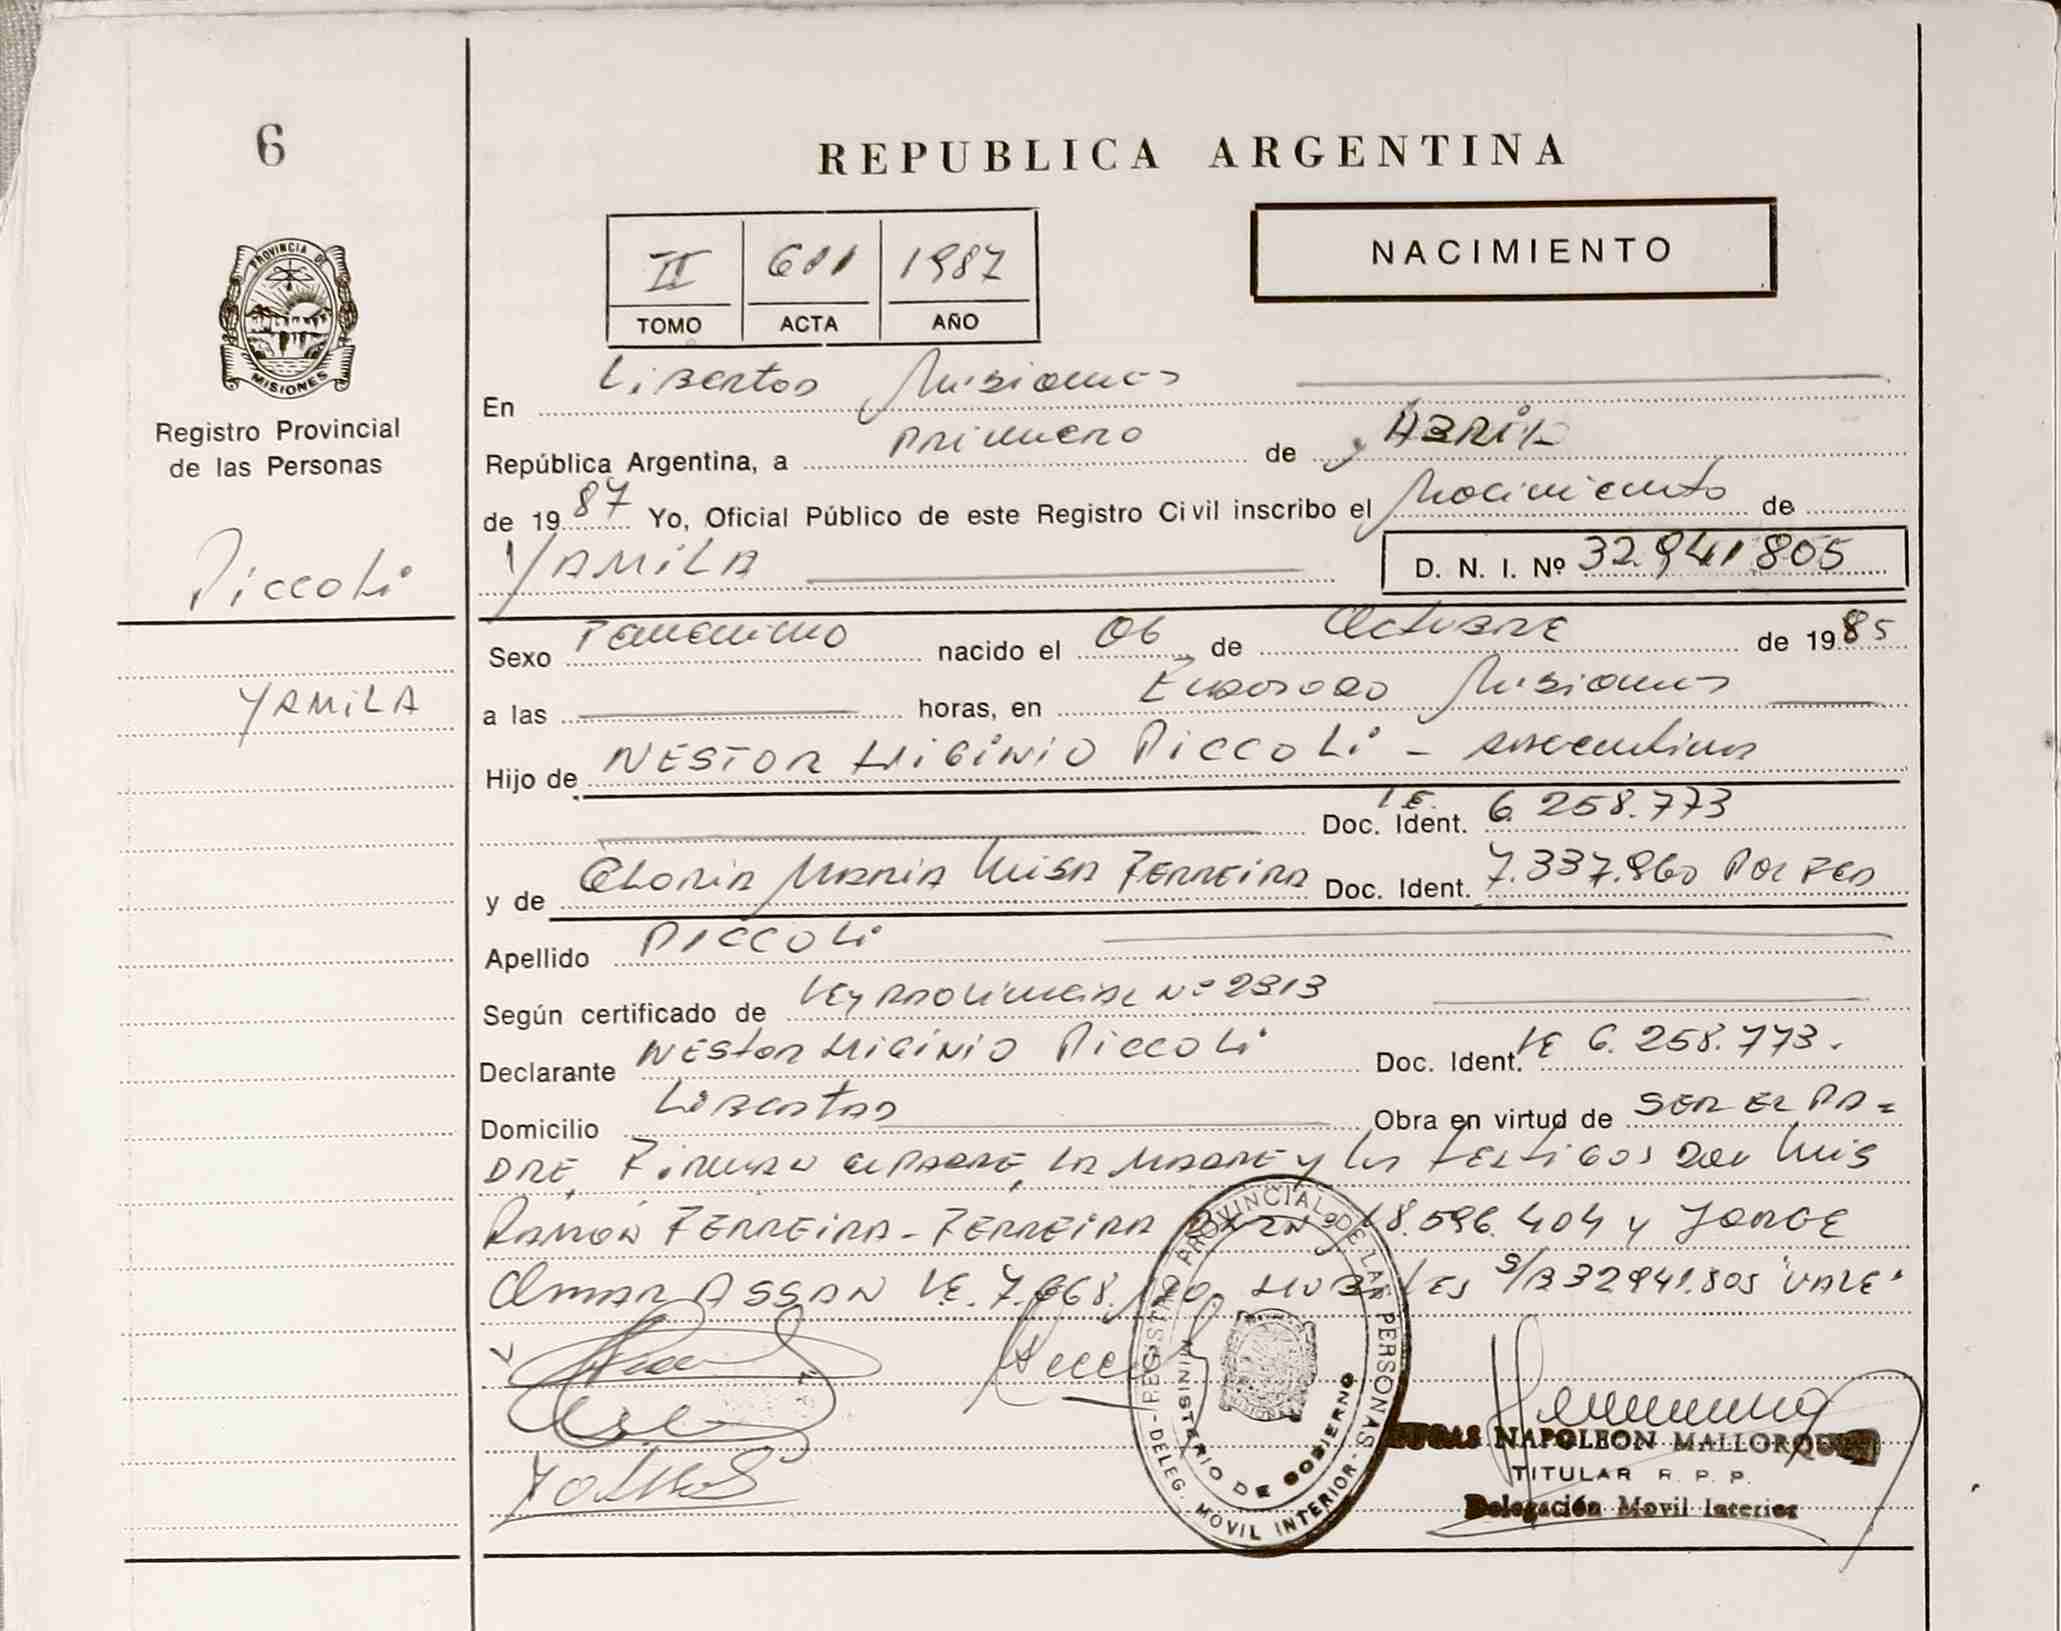 6
REPUBLICA ARGENTINA
NACIMIENTO
II 611 1987
TOMO ACTA AÑO
PROVINCIA DE
MISIONES
Registro Provincial
de las Personas
Piccoli
YAMILA
En Libertad Misiones
República Argentina, a primero de ABRIL
de 1987 Yo, Oficial Público de este Registro Civil inscribo el Nacimiento de
YAMILA D. N. I. Nº 32.941.805
Sexo Femenino nacido el 06 de Octubre de 1985
a las horas, en Eldorado Misiones
Hijo de NESTOR HIGINIO PICCOLI - argentino
Doc. Ident. L.E. 6.258.773
y de GLORIA MARIA LUISA FERREIRA Doc. Ident. 7.337.960 POL FED
Apellido PICCOLI
Según certificado de Ley Provincial Nº 2313
Declarante NESTOR HIGINIO PICCOLI Doc. Ident. LE 6.258.773.
Domicilio Libertad Obra en virtud de SER EL PA-
DRE, Firman el PADRE, la MADRE y los testigos Don Luis
RAMON FERREIRA - FERREIRA Nº 18.596.404 y JORGE
OMAR ASSAN LE. 7.668. S/B 32941.805 "VALE"
REGISTRO PROVINCIAL DE LAS PERSONAS
MINISTERIO DE GOBIERNO
DELEG. MOVIL INTERIOR
NAPOLEON
TITULAR R. P. P.
Delegación Movil Interior